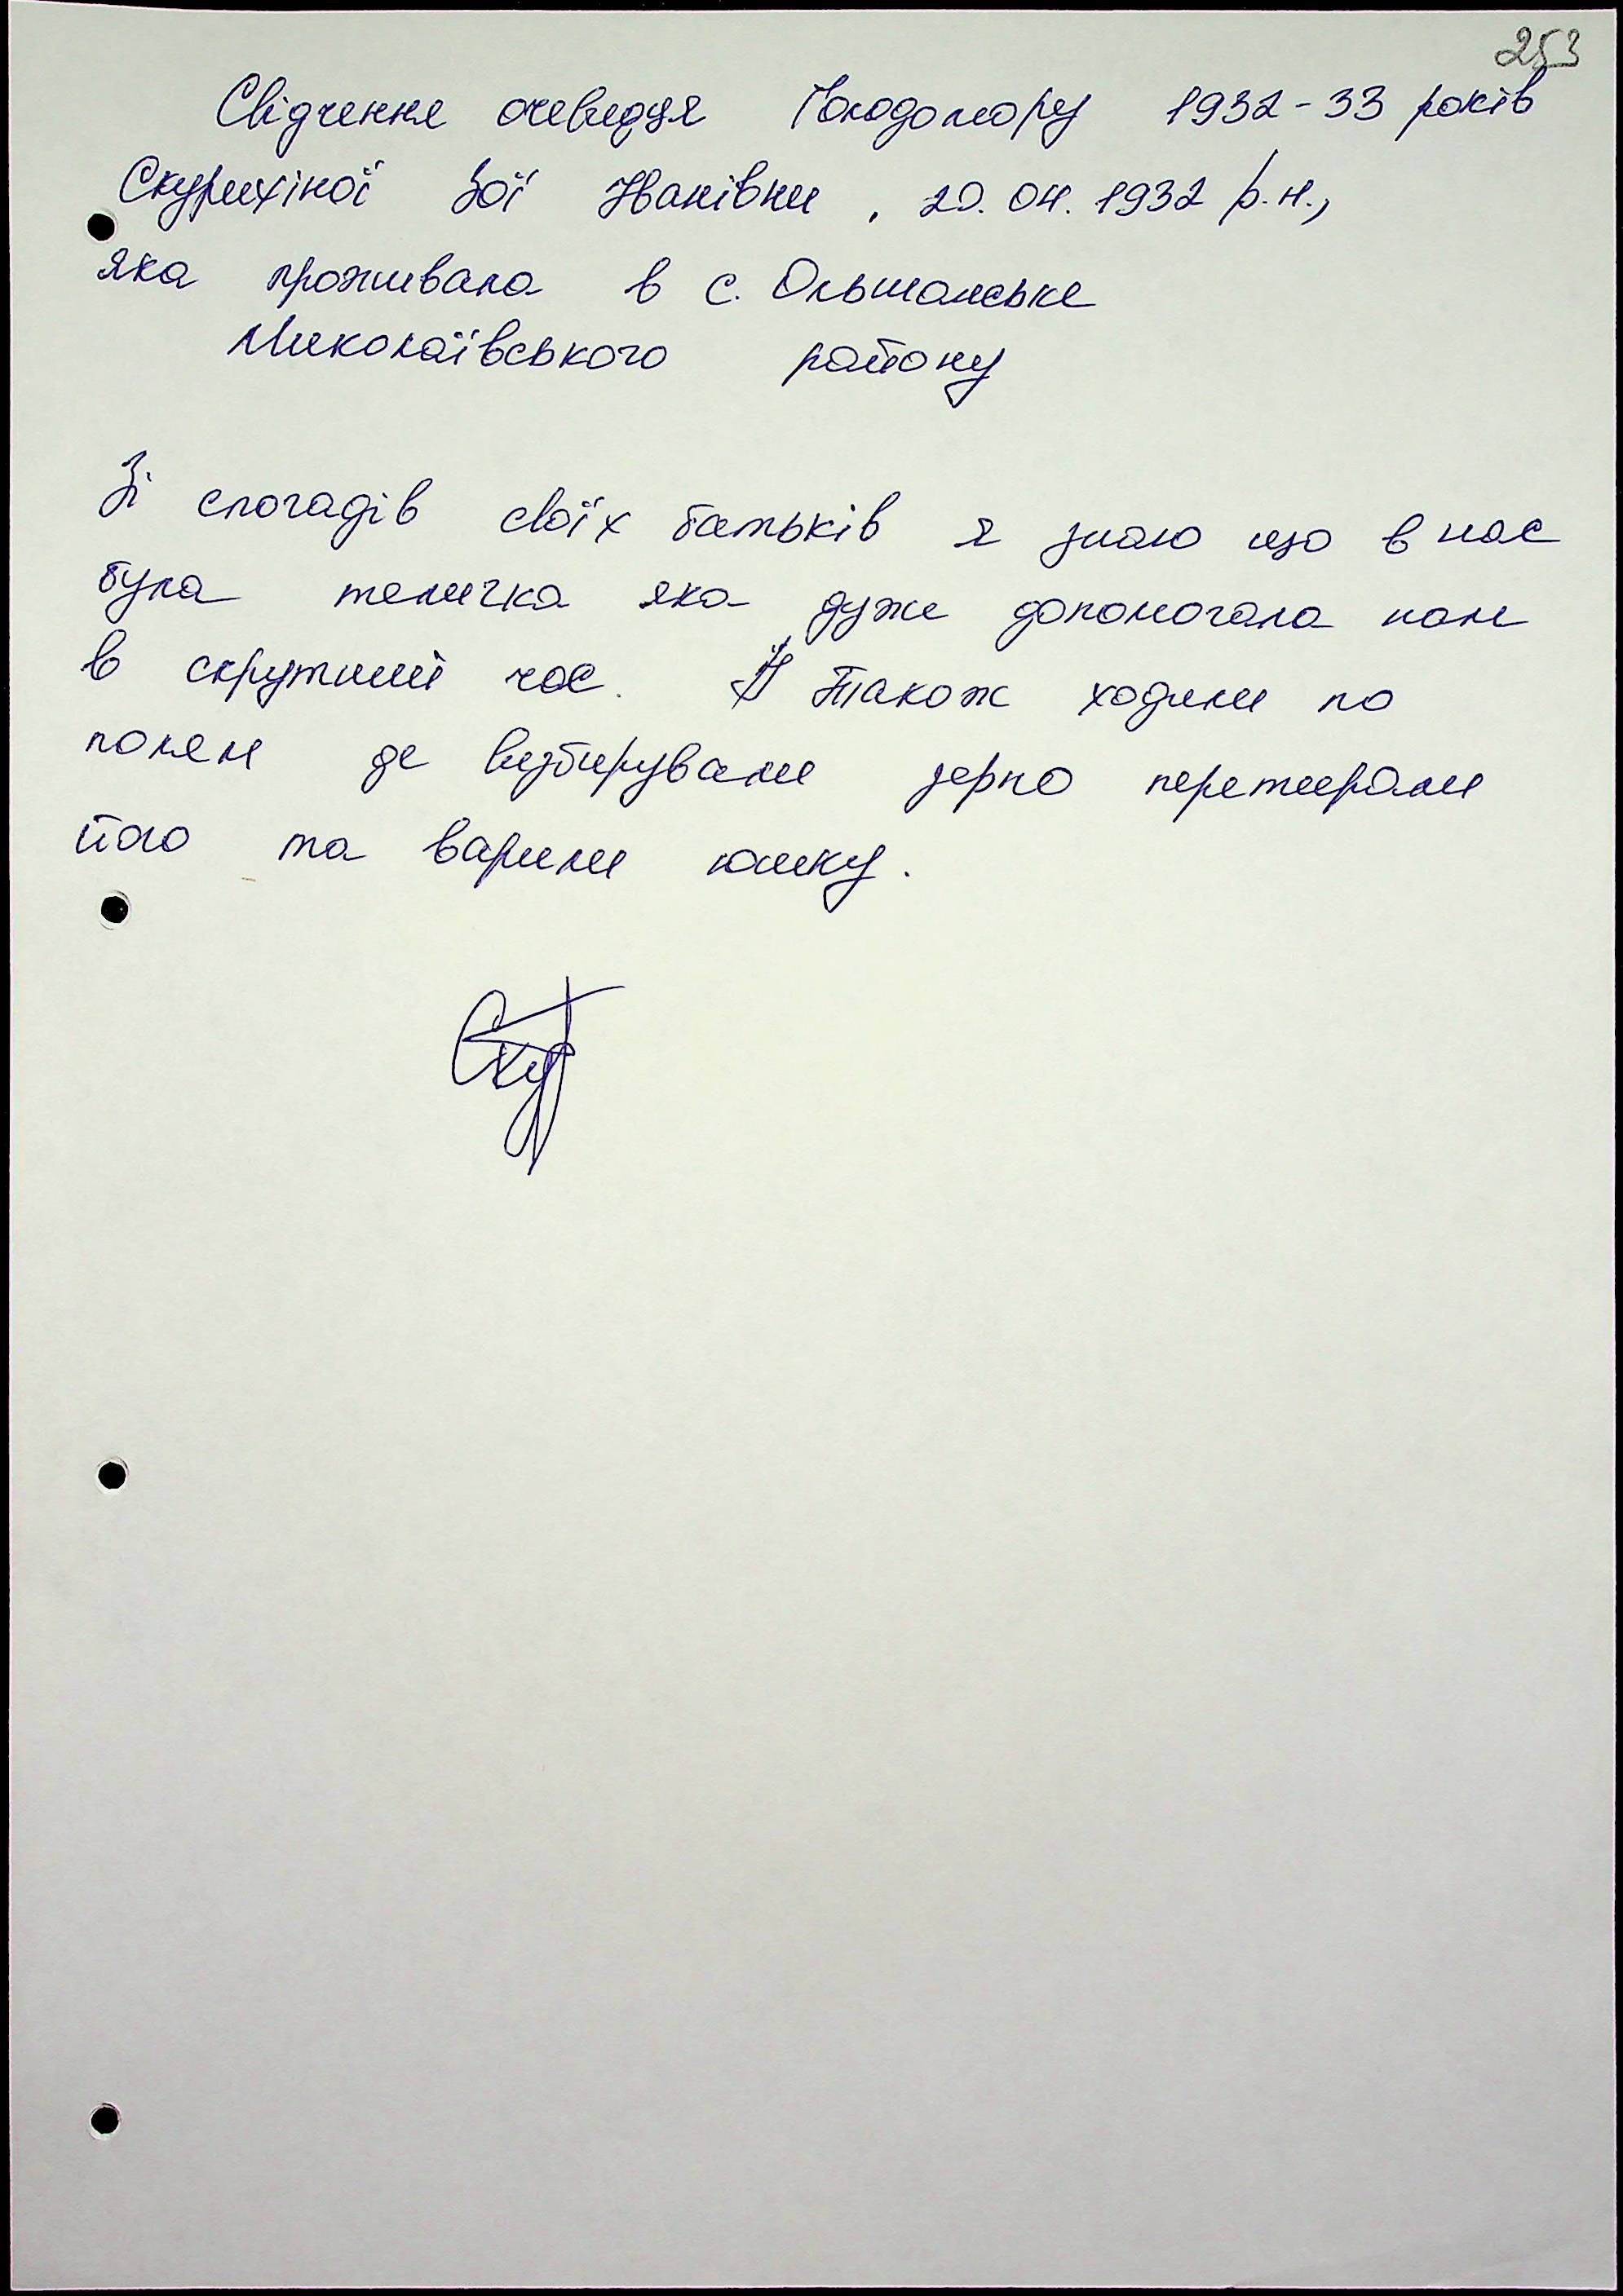 253
Свідчення очевидця Голодомору 1932-33 років
Скурихіної Зої Іванівни, 20.04.1932 р.н.,
яка проживала в с. Ольшанське
Миколаївського району
Зі спогадів своїх батьків я знаю що в нас
була теличка яка дуже допомогала нам
в скрутний час. Також ходили по
полям де визбирували зерно перетирали
його та варили юшку.
Скур